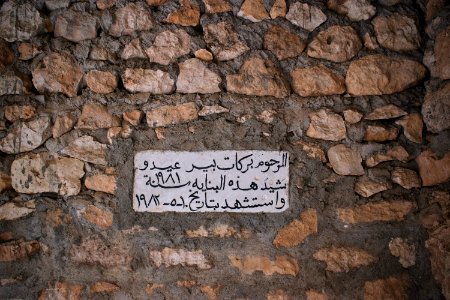 المرحوم بركات بير عيدو
شيد هذه البناية سنة ١٩٨١
واستشهد بتاريخ ٦-٥-١٩٨٣